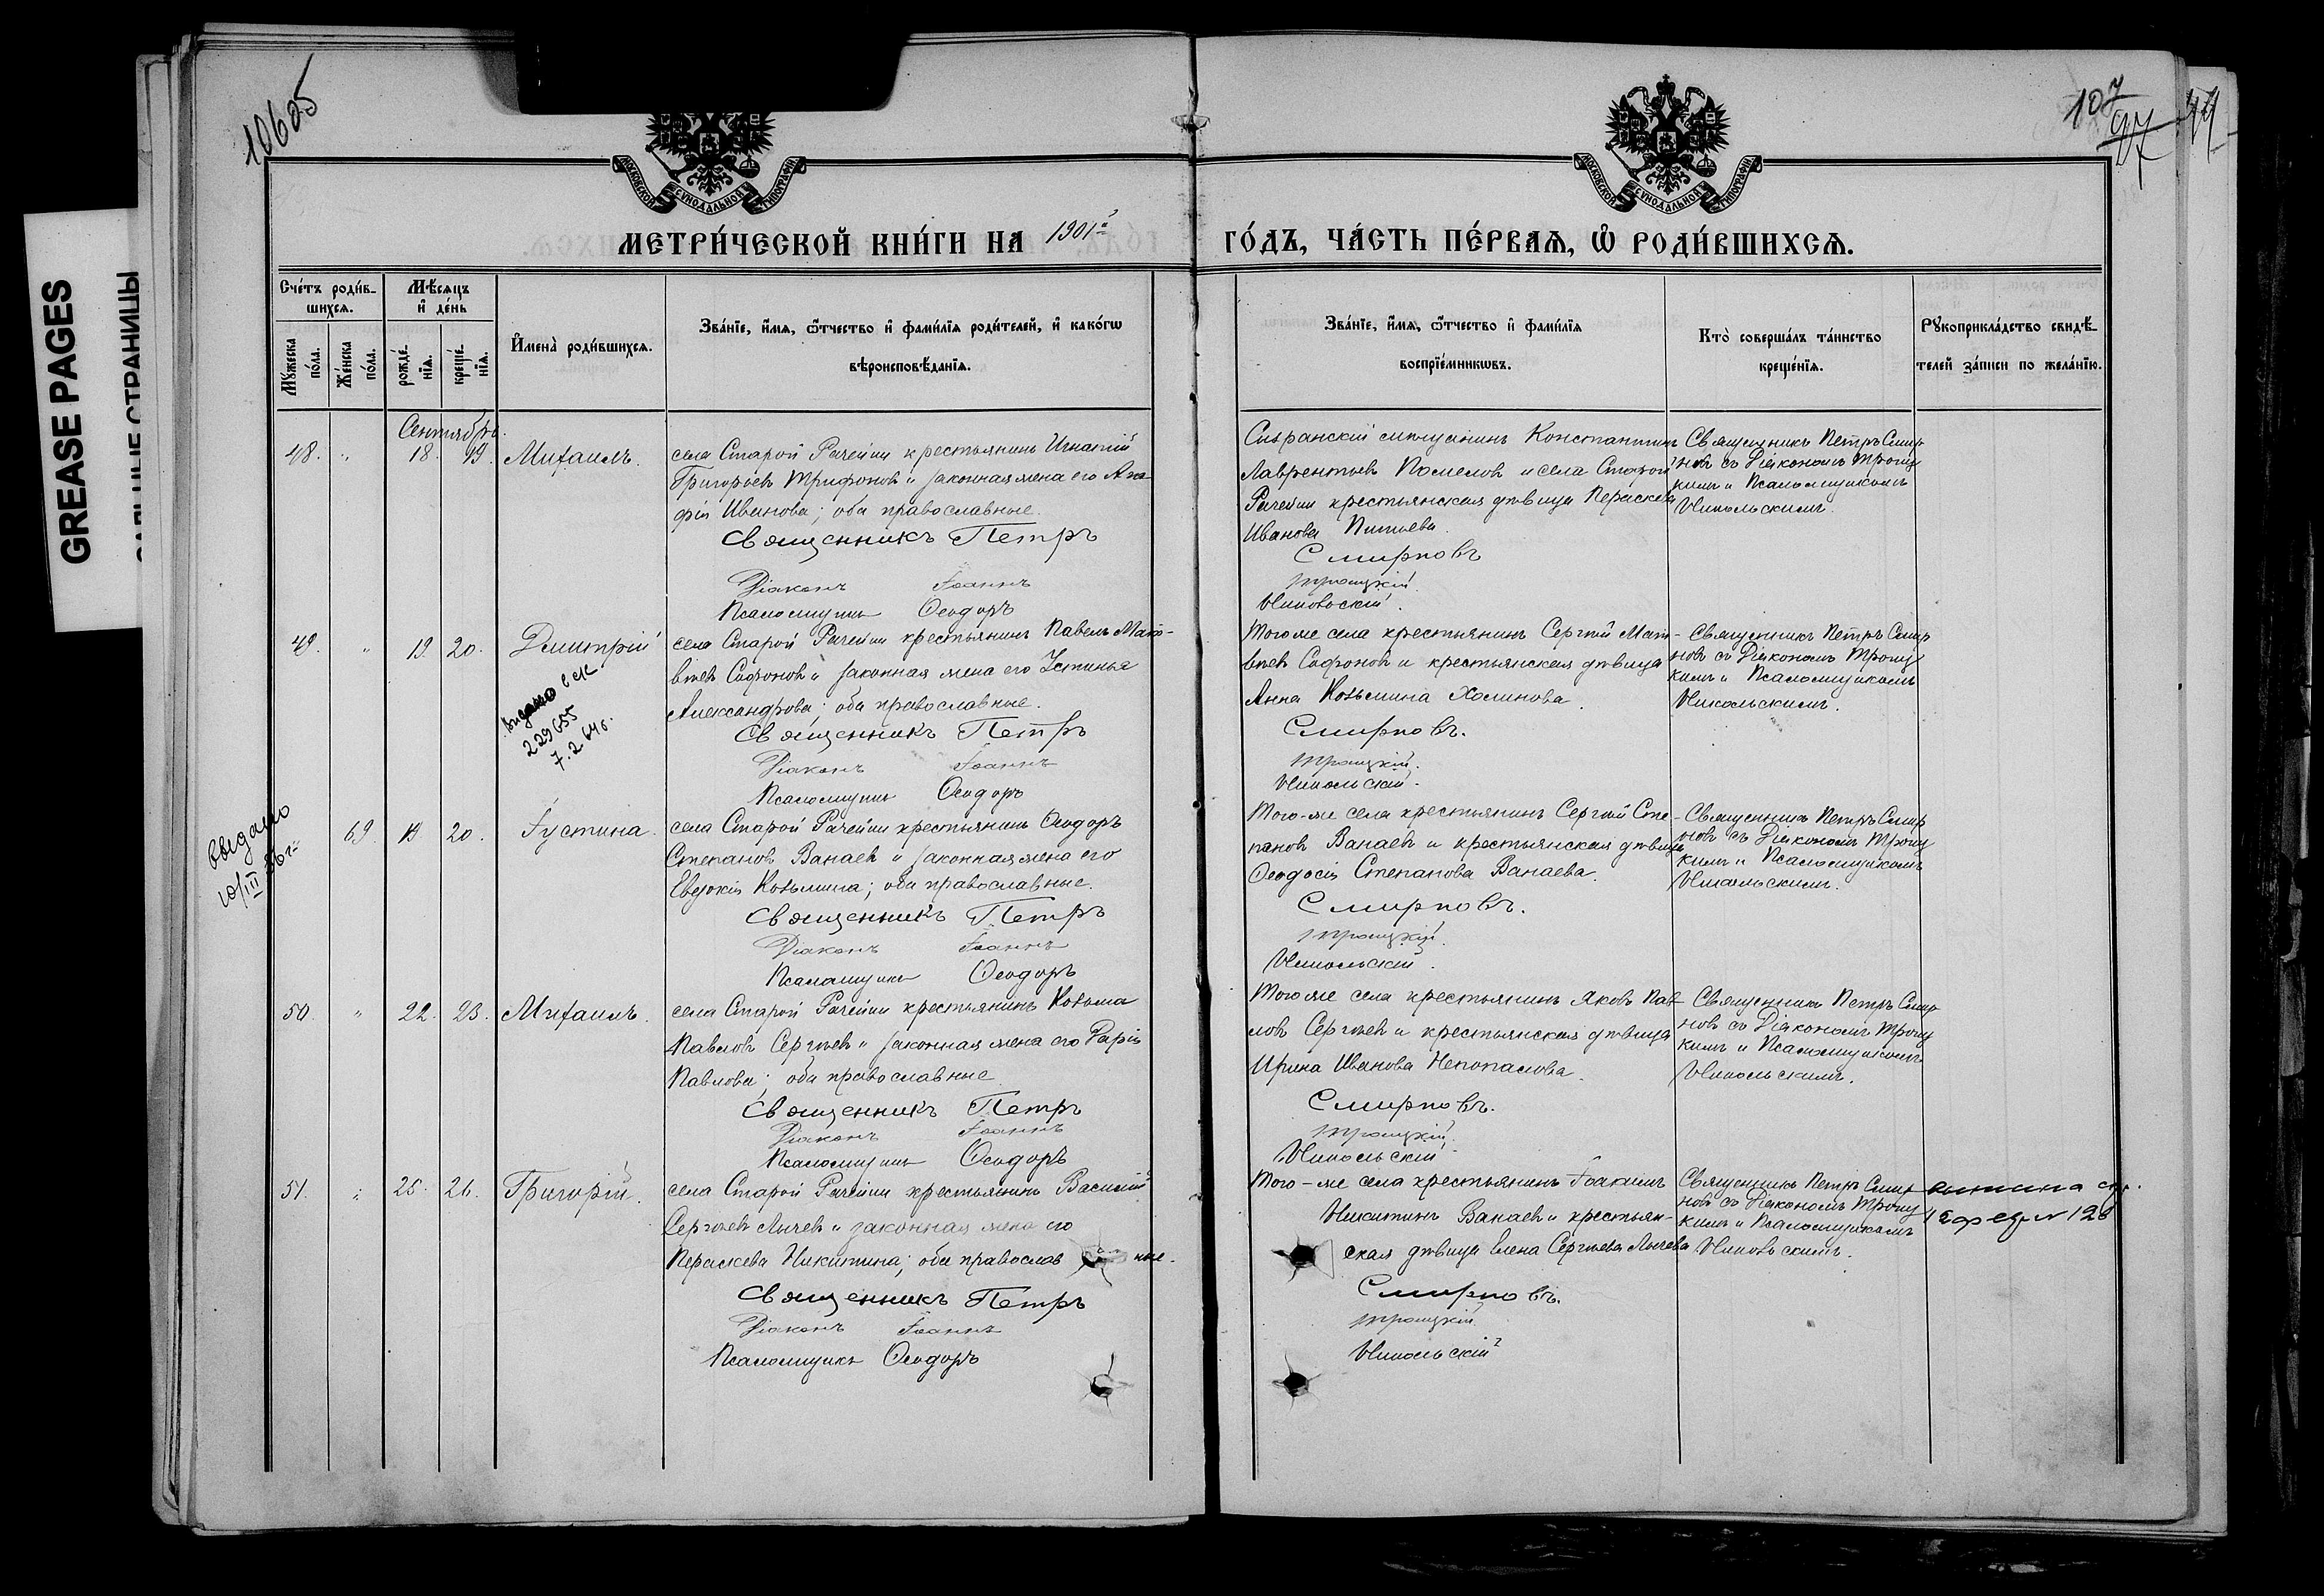 GREASE PAGES
10605
107
97
МОСКОВСКОЙ СѴНОДАЛЬНОЙ ТИПОГРАФІИ
МОСКОВСКОЙ СѴНОДАЛЬНОЙ ТИПОГРАФІИ
МЕТРИ́ЧЕСКОЙ КНИ́ГИ НА 1901й ГО́ДЪ, ЧА́СТЬ ПЕ́РВАѦ, Ѽ РОДИ́ВШИХСѦ.
Сче́тъ роди́в-
шихсѧ.
Мꙋ́жеска по́ла.
Же́нска по́ла.
Мѣ́сѧцъ
и҆ де́нь
рожде́-
нїѧ.
креще́-
нїѧ.
И҆мена̀ роди́вшихсѧ.
Зва́нїе, и҆́мѧ, ѻ҆́тчество и҆ фами́лїѧ роди́телей, и҆ како́гѡ
вѣроисповѣ́данїѧ.
Зва́нїе, и҆́мѧ, ѻ҆́тчество и҆ фами́лїѧ
воспрїе́мникѡвъ.
Кто̀ соверша́лъ та́инство
креще́нїѧ.
Рꙋкоприкла́дство свидѣ́-
телей за́писи по жела́нїю.
Сентябрь.
48. " 18. 19. Михаилъ.
села Старой Рачейки крестьянинъ Игнатій
Григорьевъ Трифоновъ и законная жена его Ага-
фія Иванова; оба православные.
Священникъ Петръ
Діаконъ Іоаннъ
Псаломщикъ Ѳеодоръ
Сызранскій мѣщанинъ Константинъ
Лаврентьевъ Помеловъ и села Старой
Рачейки крестьянская дѣвица Параскева
Иванова
Смирновъ
Троицкій
Никольскій.
Священникъ Петръ Смир-
новъ съ Діакономъ Троиц-
кимъ и Псаломщикомъ
Никольскимъ.
49. " 19. 20. Димитрій
выдано
229655
7.2.64г.
села Старой Рачейки крестьянинъ Павелъ Мат-
вѣевъ Сафоновъ и законная жена его Устинья
Александрова; оба православные.
Священникъ Петръ
Діаконъ Іоаннъ
Псаломщикъ Ѳеодоръ
Того же села крестьянинъ Сергѣй Мат-
вѣевъ Сафоновъ и крестьянская дѣвица
Анна Козьмина Холинова.
Смирновъ.
Троицкій.
Никольскій.
Священникъ Петръ Смир-
новъ съ Діакономъ Троиц-
кимъ и Псаломщикомъ
Никольскимъ.
выдано
10/III 56 г.
69. 19. 20. Іустина.
села Старой Рачейки крестьянинъ Ѳеодоръ
Степановъ Ванаевъ и законная жена его
Евдокія Козьмина; оба православные.
Священникъ Петръ
Діаконъ Іоаннъ
Псаломщикъ Ѳеодоръ
Того-же села крестьянинъ Сергѣй Сте-
пановъ Ванаевъ и крестьянская дѣвица
Ѳеодосія Степанова Ванаева.
Смирновъ.
Троицкій.
Никольскій.
Священникъ Петръ Смир-
новъ съ Діакономъ Троиц-
кимъ и Псаломщикомъ
Никольскимъ.
50. " 22. 23. Михаилъ.
села Старой Рачейки крестьянинъ Козьма
Павловъ Сергѣевъ и законная жена его Дарія
Павлова; оба православные
Священникъ Петръ
Діаконъ Іоаннъ
Псаломщикъ Ѳеодоръ
Того же села крестьянинъ Яковъ Пав-
ловъ Сергѣевъ и крестьянская дѣвица
Ирина Иванова Непопалова.
Смирновъ.
Троицкій.
Никольскій.
Священникъ Петръ Смир-
новъ съ Діакономъ Троиц-
кимъ и Псаломщикомъ
Никольскимъ.
51. " 25. 26. Григорій.
села Старой Рачейки крестьянинъ Василій
Сергѣевъ Лычевъ и законная жена его
Параскева Никитина; оба православные.
Священникъ Петръ
Діаконъ Іоаннъ
Псаломщикъ Ѳеодоръ
Того-же села крестьянинъ Іоакимъ
Никитинъ Ванаевъ и крестьян-
ская дѣвица Елена Сергѣева Лычева
Смирновъ.
Троицкій
Никольскій
Священникъ Петръ Смир-
новъ съ Діакономъ Троиц-
кимъ и Псаломщикомъ
Никольскимъ.